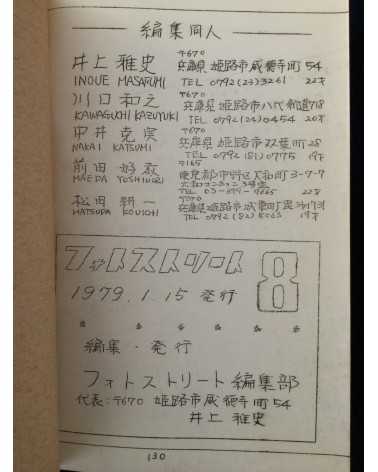 編集同人
〒670
井上雅史 兵庫県姫路市威徳寺町54
INOUE MASAFUMI TEL 0792(23)3261 22才
〒670
川口和之 兵庫県姫路市八代
KAWAGUCHI KAZUYUKI TEL 0792(24)0454 20才
〒670
中井克実 兵庫県姫路市双葉町28
NAKAI KATSUMI TEL 0792(81)0775 19才
〒165
前田好敬 東京都中野区大和町3-7-7
MAEDA YOSHINORI
TEL 03- 22才
〒670
松田 一 兵庫県姫路市城東町
MATSUDA KOUICHI TEL 0792(82)
フォトストリート 8
1979.1.15 発行
編集・発行
フォトストリート編集部
代表:〒670 姫路市威徳寺町54
井上雅史
130